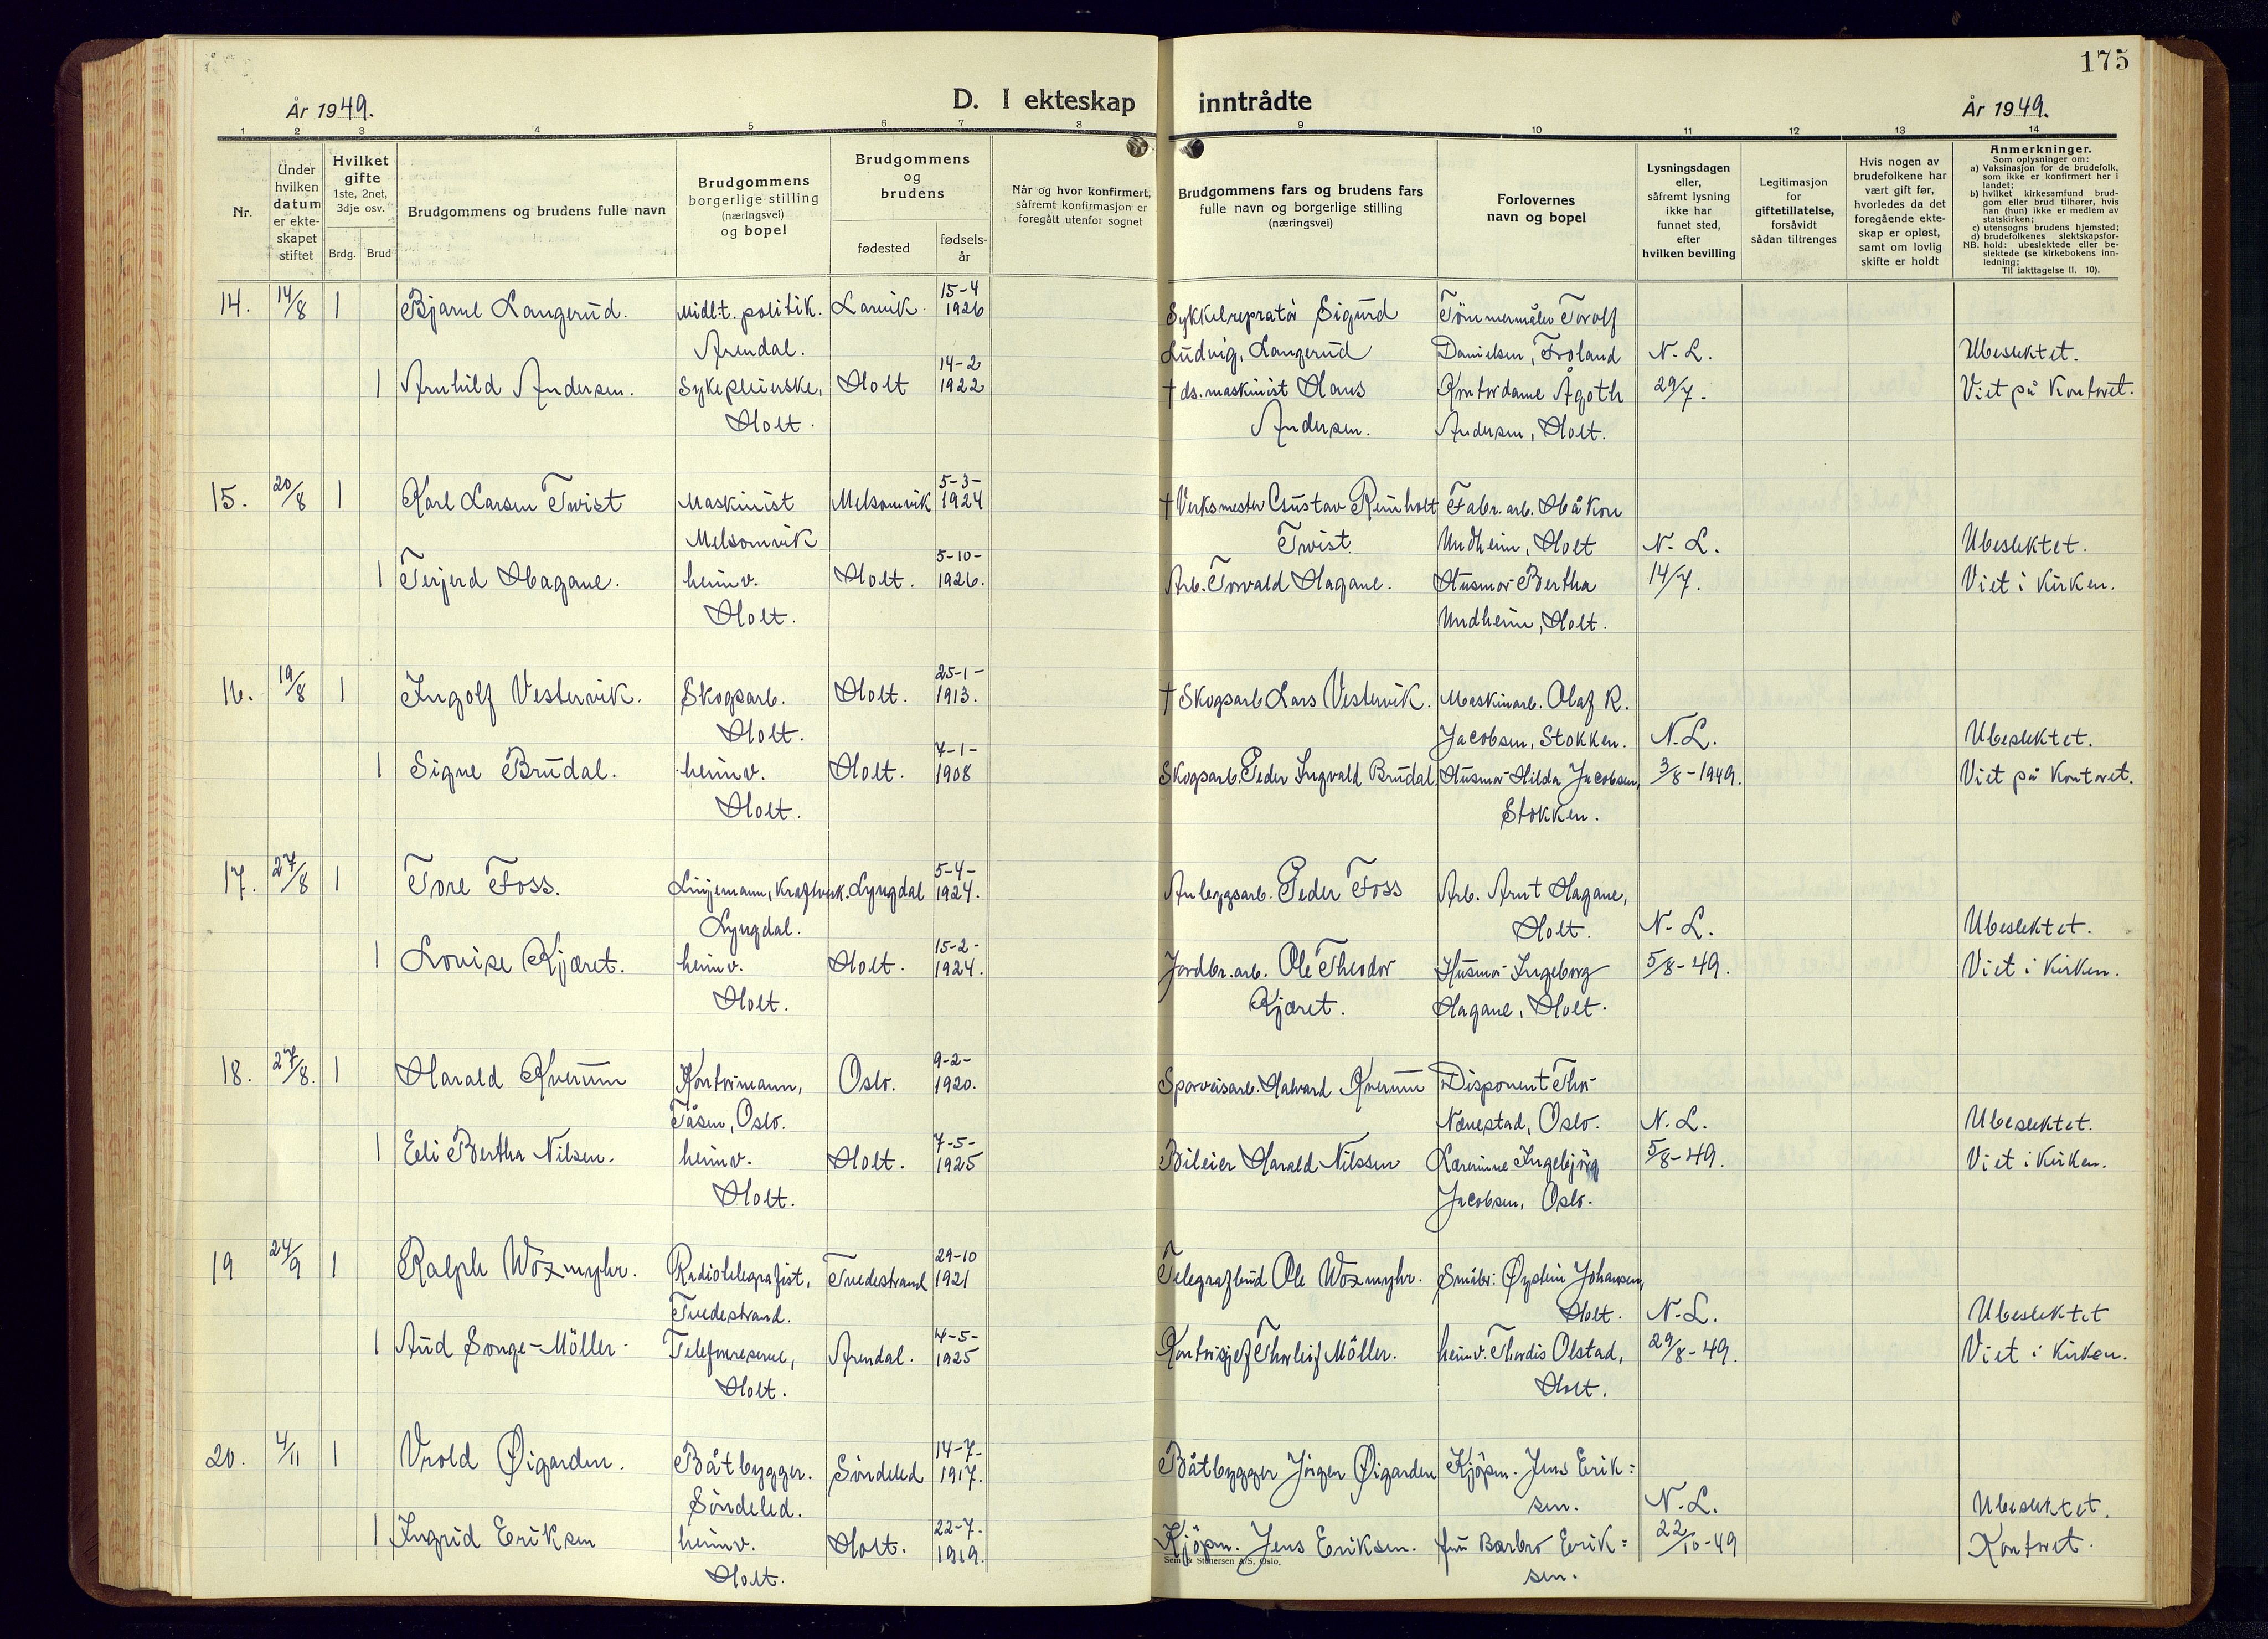 175
År 1949.
D. I ekteskap inntrådte
År 1949.
1 2 3 4 5 6 7 8 9 10 11 12 13 14
Nr.
Under
hvilken
datum
er ekte-
skapet
stiftet
Hvilket
gifte
1ste, 2net,
3dje osv.
Brdg. Brud
Brudgommens og brudens fulle navn
Brudgommens
borgerlige stilling
(næringsvei)
og bopel
Brudgommens
og
brudens
fødested
fødsels-
år
Når og hvor konfirmert,
såfremt konfirmasjon er
foregått utenfor sognet
Brudgommens fars og brudens fars
fulle navn og borgerlige stilling
(næringsvei)
Forlovernes
navn og bopel
Lysningsdagen
eller,
såfremt lysning
ikke har
funnet sted,
efter
hvilken bevilling
Legitimasjon
for
giftetillatelse,
forsåvidt
sådan tiltrenges
Hvis nogen av
brudefolkene har
vært gift før,
hvorledes da det
foregående ekte-
skap er opløst,
samt om lovlig
skifte er holdt
Anmerkninger.
Som oplysninger om:
a) Vaksinasjon for de brudefolk,
som ikke er konfirmert her i
landet;
b) hvilket kirkesamfund brud-
gom eller brud tilhører, hvis
han (hun) ikke er medlem av
statskirken;
c) utensogns brudens hjemsted;
d) brudefolkenes slektskapsfor-
NB. hold: ubeslektede eller be-
slektede (se kirkebokens inn-
ledning;
Til iakttagelse II. 10).
15-4
14. 14/8 1 Bjarne Langerud. Midlt. politik. Larvik. 1926 Sykkelrepratör Sigurd Tömmermåler Torolf
Arendal. 14-2 Ludvig, Langerud Danielsen, Froland N. L. Ubeslektet.
1 Arnhild Andersen. Sykepleierske, Holt 1922 † ds. maskinist Hans Kontordame Ågoth 29/7. Viet på Kontoret.
Holt. Andersen. Andersen, Holt.
5-3-
15. 20/8 1 Karl Larsen Twist Maskinist Melsomvik 1924 † Verksmester Gustav Reinholt Fabr. arb. Håkon
Melsomvik 5-10- Twist. Undheim, Holt N. L. Ubeslektet.
1 Terjerd Hagane. heimv. Holt. 1926. Arb. Torvald Hagane. Husmor Bertha 14/7. Viet i Kirken.
Holt. Undheim, Holt.
25-1-
16. 19/8 1 Ingolf Vestervik. Skogsarb. Holt. 1913. † Skogsarb Lars Vestervik. Maskinarb. Olaf R.
Holt. 7-1- Jacobsen, Stokken. N.L. Ubeslektet.
1 Signe Brudal. heimv. Holt. 1908 Skogsarb. Peder Ingvald Brudal. Husmor Hilda Jacobsen, 3/8-1949. Viet på Kontoret.
Holt. Stokken.
5-4-
17. 27/8 1 Tore Foss. Linjemann, Kraftverk. Lyngdal 1924. Anleggsarb. Peder Foss Arb. Arnt Hagane,
Lyngdal. 15-2- Holt. N. L. Ubeslektet.
1 Lovise Kjæret. heimv. Holt. 1924. Jordbr. arb. Ole Theodor Husmor Ingeborg 5/8-49. Viet i Kirken.
Holt. Kjæret. Hagane, Holt.
9-2-
18. 27/8. 1 Harald Kverum Kontormann, Oslo. 1920. Sporveisarb. Halvard Kverum Disponent Thor
Tåsen, Oslo. 7-5- Nænestad, Oslo. N. L. Ubeslektet.
1 Eli Bertha Nilsen. heimv. Holt. 1925 Bileier Harald Nilssen Lærerinne Ingebjörg 5/8-49. Viet i Kirken.
Holt. Jacobsen, Oslo.
29-10
19 24/9 1 Ralph Woxmyhr. Radiotelegrafist, Tvedestrand 1921 Telegrafbud Ole Woxmyhr. Småbr: Øystein Johansen,
Tvedestrand. 4-5- Holt. N. L. Ubeslektet
1 Aud Songe-Möller Telefonreserve, Arendal. 1925 Kontorsjef Thorleif Möller. heimv. Thordis Olstad, 29/8-49. Viet i Kirken.
Holt. Holt.
14-7-
20. 4/11 1 Vrold Øigarden. Båtbygger. Söndeled 1917. Båtbygger Jörgen Øigarden Kjöpm. Jens Erik=
Söndeled. 22-7- sen. N. L. Ubeslektet.
1 Ingrid Eriksen heimv. Holt. 1919. Kjöpm. Jens Eriksen. fru Barbro Erik= 22/10-49 Kontoret.
Holt. sen.
Sem & Stenersen A/S, Oslo.